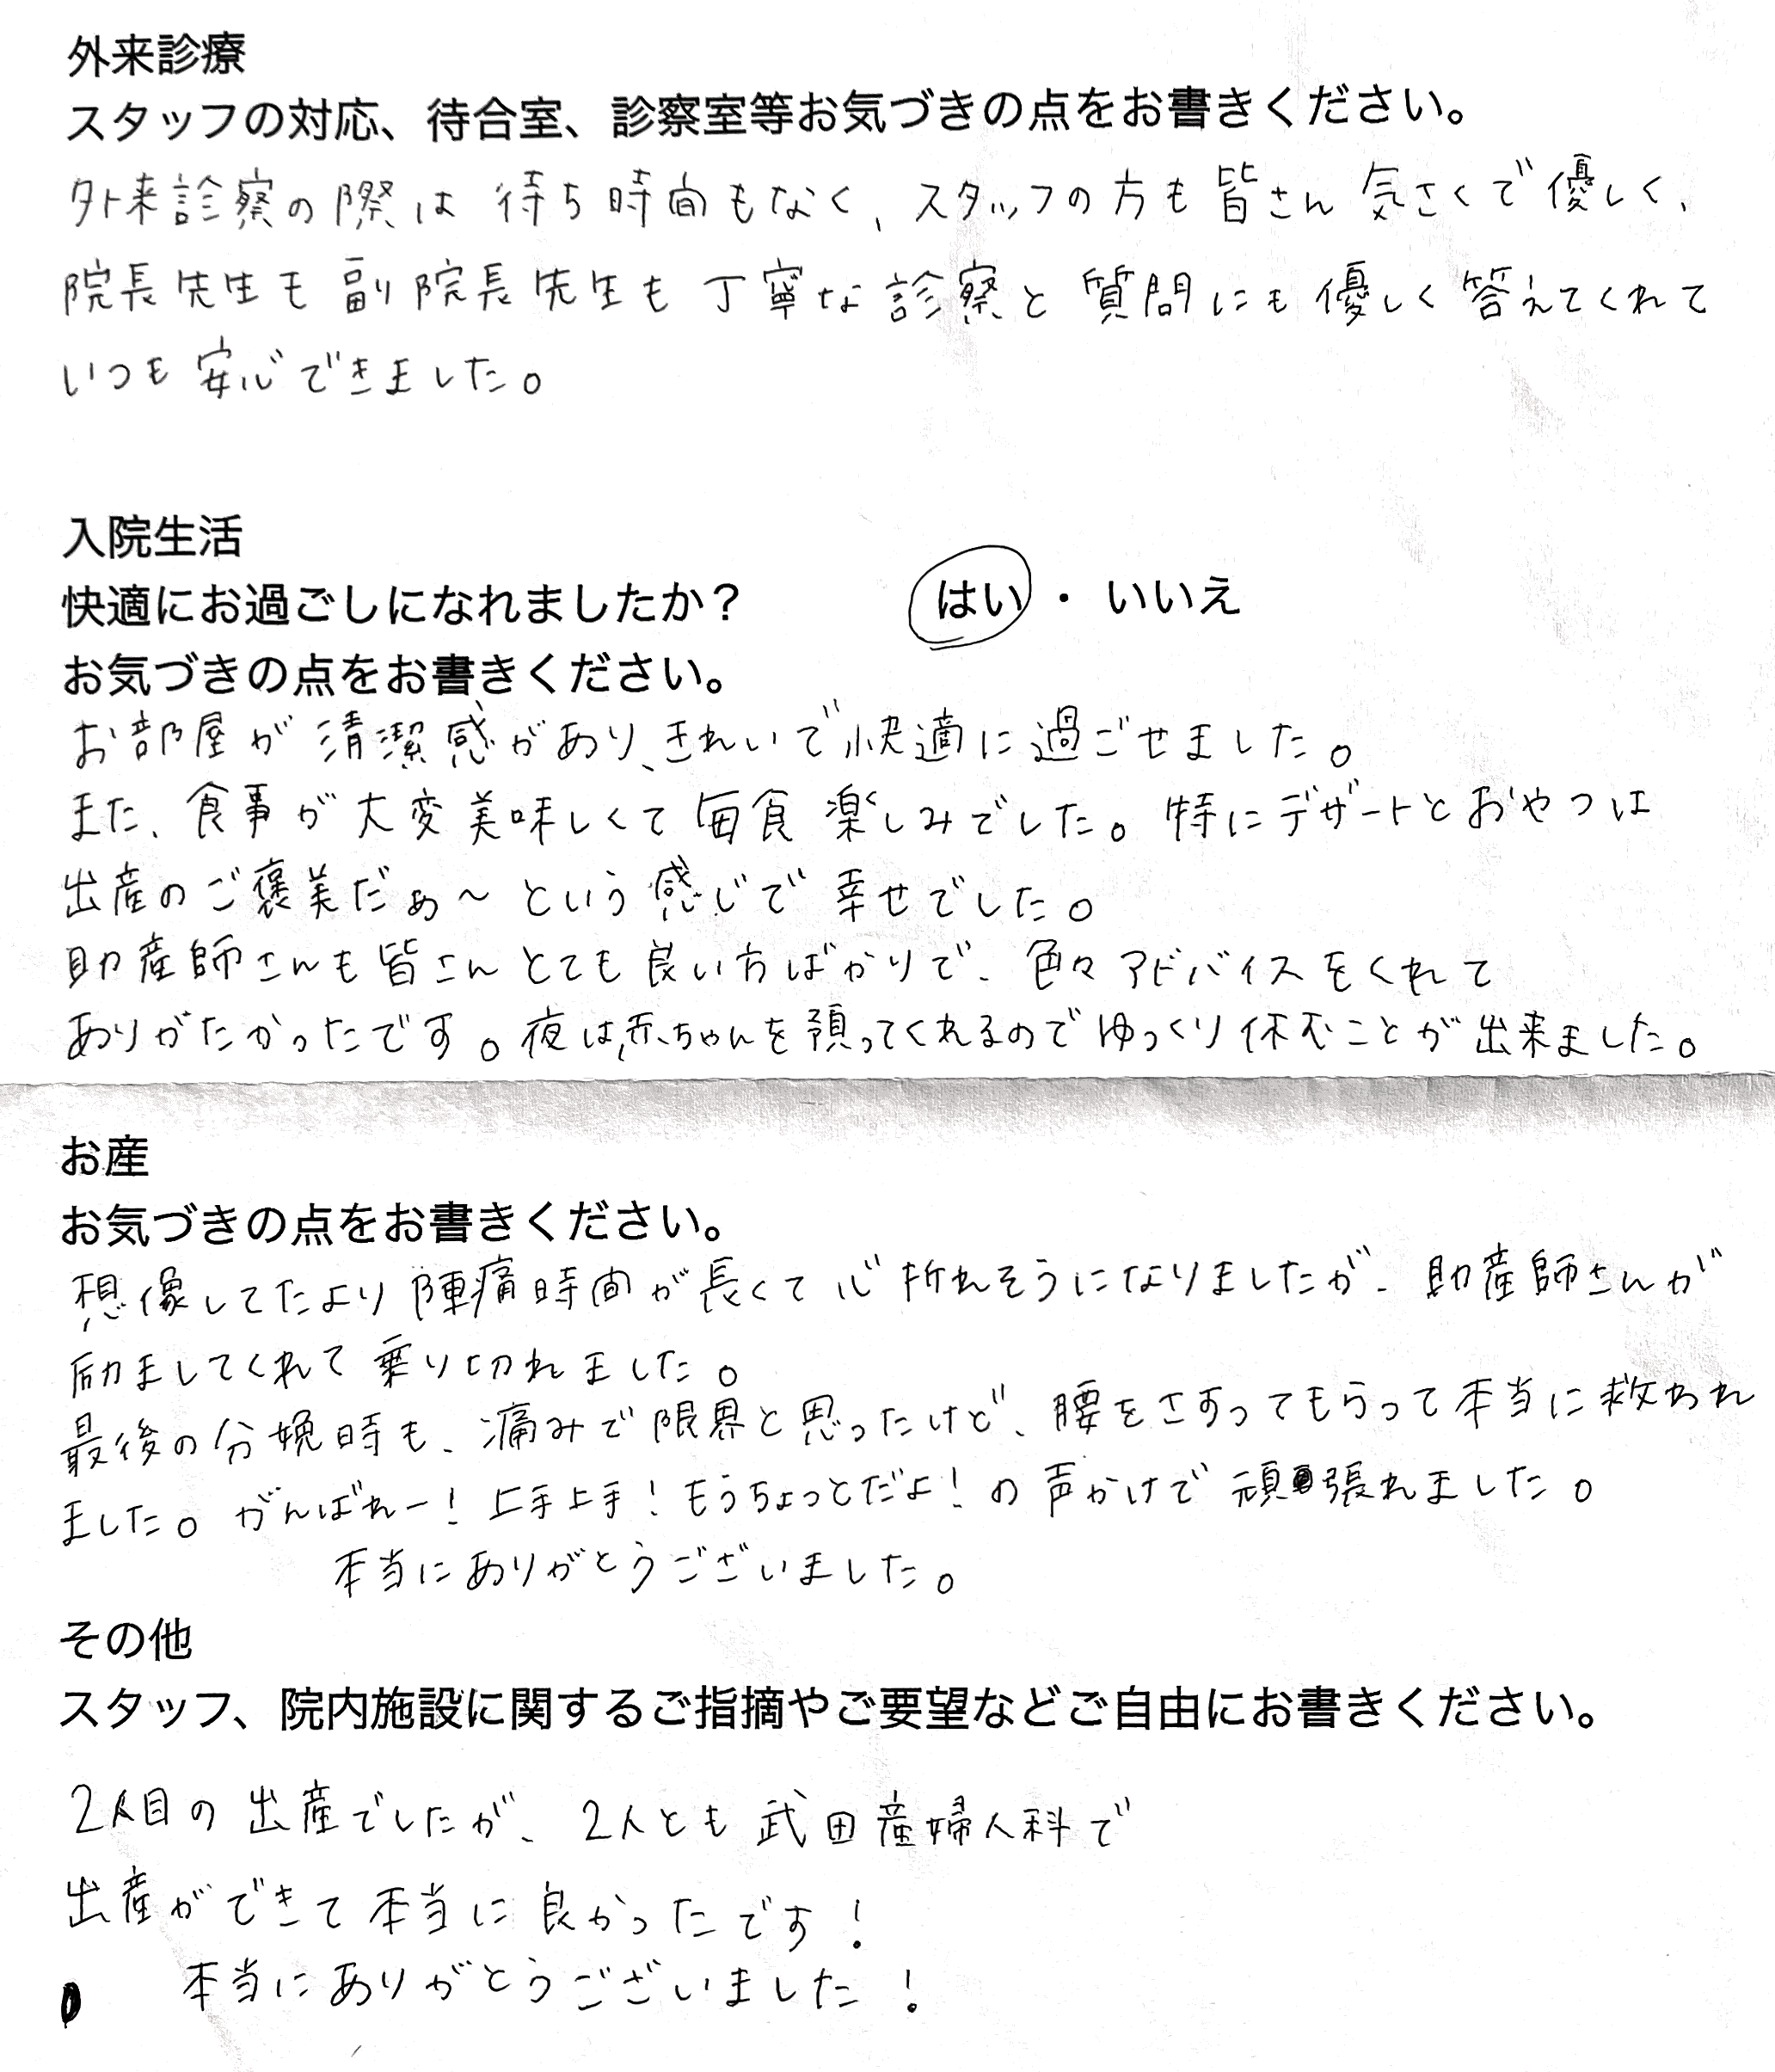 外来診療
スタッフの対応、待合室、診察室等お気づきの点をお書きください。
外来診察の際は待ち時間もなく、スタッフの方も皆さん気さくで優しく、
院長先生も副院長先生も丁寧な診察と質問にも優しく答えてくれて
いつも安心できました。
入院生活
快適にお過ごしになれましたか？ はい・いいえ
お気づきの点をお書きください。
お部屋が清潔感があり、きれいで快適に過ごせました。
また、食事が大変美味しくて毎食楽しみでした。特にデザートとおやつは
出産のご褒美だぁ〜という感じで幸せでした。
助産師さんも皆さんとても良い方ばかりで、色々アドバイスをくれて
ありがたかったです。夜は赤ちゃんを預ってくれるのでゆっくり休むことが出来ました。
お産
お気づきの点をお書きください。
想像してたより陣痛時間が長くて心折れそうになりましたが、助産師さんが
励ましてくれて乗り切れました。
最後の分娩時も、痛みで限界と思ったけど、腰をさすってもらって本当に救われ
ました。がんばれー！上手上手！もうちょっとだよ！の声かけで頑張れました。
本当にありがとうございました。
その他
スタッフ、院内施設に関するご指摘やご要望などご自由にお書きください。
2人目の出産でしたが、2人とも武田産婦人科で
出産ができて本当に良かったです！
本当にありがとうございました！